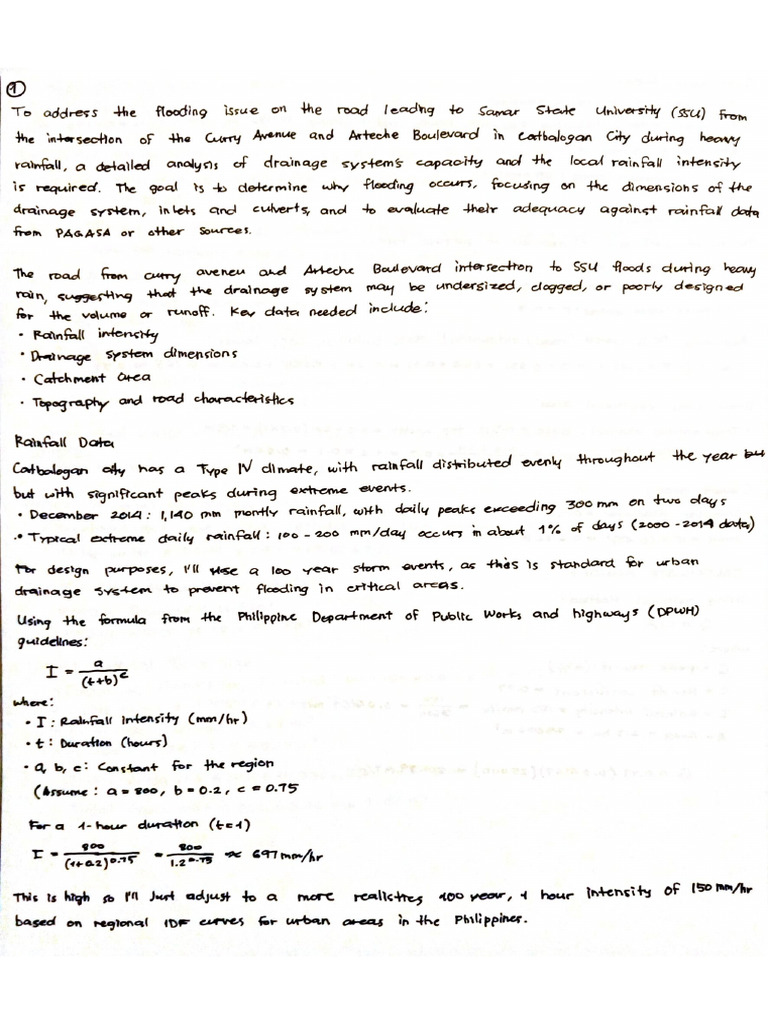 1
To address the flooding issue on the road leadng to Samar State University (SSU) from
the intersection of the Curry Avenue and Arteche Boulevard in Catbalogan City during heavy
rainfall, a detailed analysis of drainage system's capacity and the local rainfall intensity
is required. The goal is to determine why flooding occurs, focusing on the dimensions of the
drainage system, inlets and culverts, and to evaluate their adequacy against rainfall data
from PAGASA or other sources.
The road from curry aveneu and Arteche Boulevard intersection to SSU floods during heavy
rain, suggesting that the drainage system may be undersized, clogged, or poorly designed
for the volume or runoff. Key data needed include:
• Rainfall intensity
• Drainage system dimensions
• Catchment area
• Topography and road characteristics
Rainfall Data
Catbalogan city has a Type IV climate, with rainfall distributed evenly throughout the year but
but with significant peaks during extreme events.
• December 2014: 1,140 mm montly rainfall, with daily peaks exceeding 300 mm on two days
• Typical extreme daily rainfall: 100 - 200 mm/day occurs in about 1% of days (2000-2014 data)
For design purposes, I'll use a 100 year storm events, as this is standard for urban
drainage system to prevent flooding in critical areas.
Using the formula from the Philippine Department of Public Works and highways (DPWH)
guidelines:
I = a / (t+b)^c
where:
• I: Rainfall intensity (mm/hr)
• t: Duration (hours)
• a, b, c: Constant for the region
(Assume: a = 800, b = 0.2, c = 0.75
For a 1-hour duration (t=1)
I = 800 / (1+0.2)^0.75 = 800 / 1.2^0.75 ≈ 697 mm/hr
This is high so I'll just adjust to a more 100 year, 1 hour intensity of 150 mm/hr
based on regional IDF curves for urban areas in the Philippines.